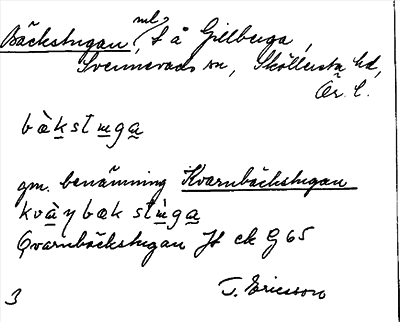 Bäckstugan, t å Gillberga,
Svennevads sn, Sköllersta hd,
Ör. l.
bàkstuga
gm. benämning Kvarnbäckstugan
kvàɳbækstùga
Qvarnbäckstugan Jt ck G 65
3
T. Ericsson